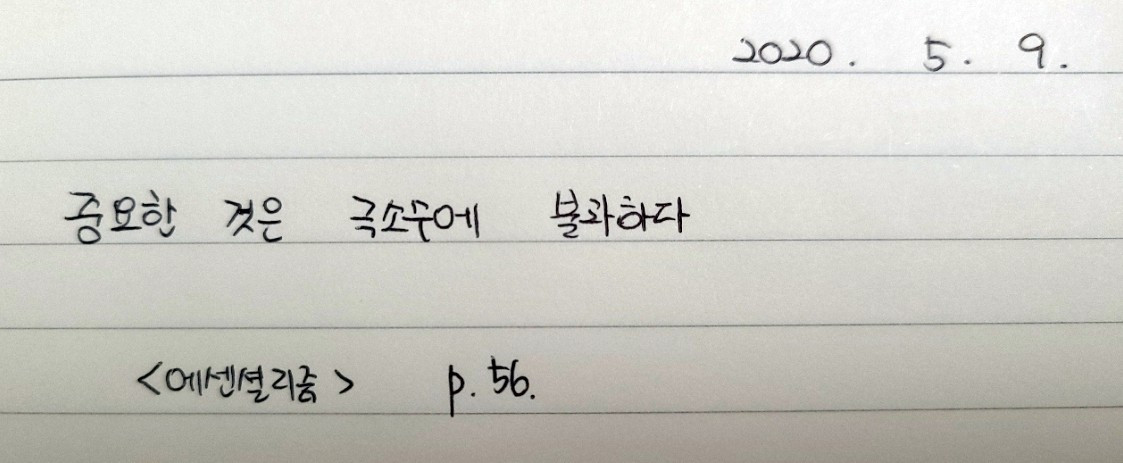 2020. 5. 9.
중요한 것은 극소수에 불과하다
<에센셜리즘> p. 56.